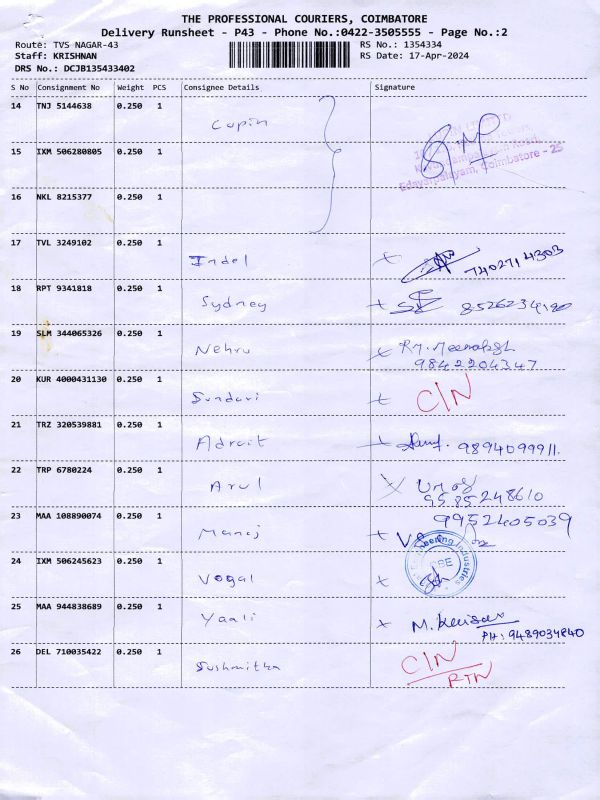 THE PROFESSIONAL COURIERS, COIMBATORE
Delivery Runsheet - P43 - Phone No.:0422-3505555 - Page No.:2
Route: TVS NAGAR-43 RS No.: 1354334
Staff: KRISHNAN RS Date: 17-Apr-2024
DRS No.: DCJB135433402
S No Consignment No Weight PCS Consignee Details Signature
14 TNJ 5144638 0.250 1
Cupin
15 IXM 506280805 0.250 1
Edayarpalayam, Coimbatore - 25
16 NKL 8215377 0.250 1
17 TVL 3249102 0.250 1
Indel 7402714303
18 RPT 9341818 0.250 1
Sydney 8526234190
19 SLM 344065326 0.250 1
Nehru
9842204347
20 KUR 4000431130 0.250 1
Sundari C/N
21 TRZ 320539881 0.250 1
Adroit 9894099911.
22 TRP 6780224 0.250 1
Arul
9585248610
23 MAA 108890074 0.250 1 9952405039
Manoj
24 IXM 506245623 0.250 1
Engineering Industries
Vogal
25 MAA 944838689 0.250 1
Yaali
PH: 9489034840
26 DEL 710035422 0.250 1 C/N
Sushmitha RTN